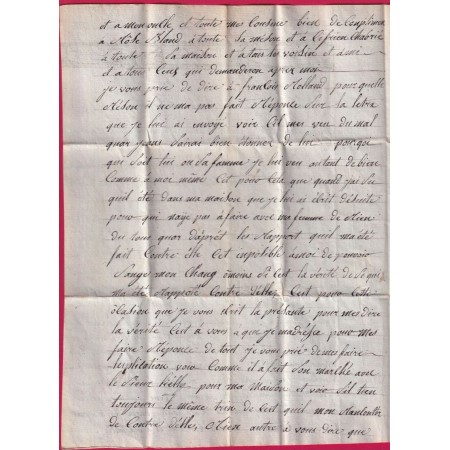 et a mon oncle et toute mes Cousine bien de Complimen
a hôte Roland à toute sa méson et à Cyfrien Chabrié
à toute sa maison et a tous les voisin et ami
et a tous Ceux qui demanderon apres moi
je vous prie de dire à francois Rolland pour quelle
Réson il ne ma pas fait Réponce Sur la letre
que je lui ai envoyé voir Cil mes veu du mal
quar je me Sairai bien étonez de lui pourque
qui Soit lui ou Sa famme je lui veu autant de bien
Comme a moi même Cet pour Cela que quand jai Su
quil été dans ma maison que je lui ai écrit de Suite
pour qui naye pas à faire avec ma femme de Rien
du tous quar daprèt les Rapport quil ma été
fait Contre elle Cet impossible à moi de pouvoir
Sanger mon Chang Cest la vérité de Se qui
ma été Rapporté Contre Celle Cest pour Cette
que je vous écrit la présante pour me dire
la vérité Cest a vous a que je madrèse pour mes
faire Réponce de tout je vous prie de mes faire
voir Comme il a fait Son marché avec
le Sieur pour ma Maison et voir Sil tien
toujours le même trin de Cest quil mon
de Contre Celle, Rien autre à vous dire que